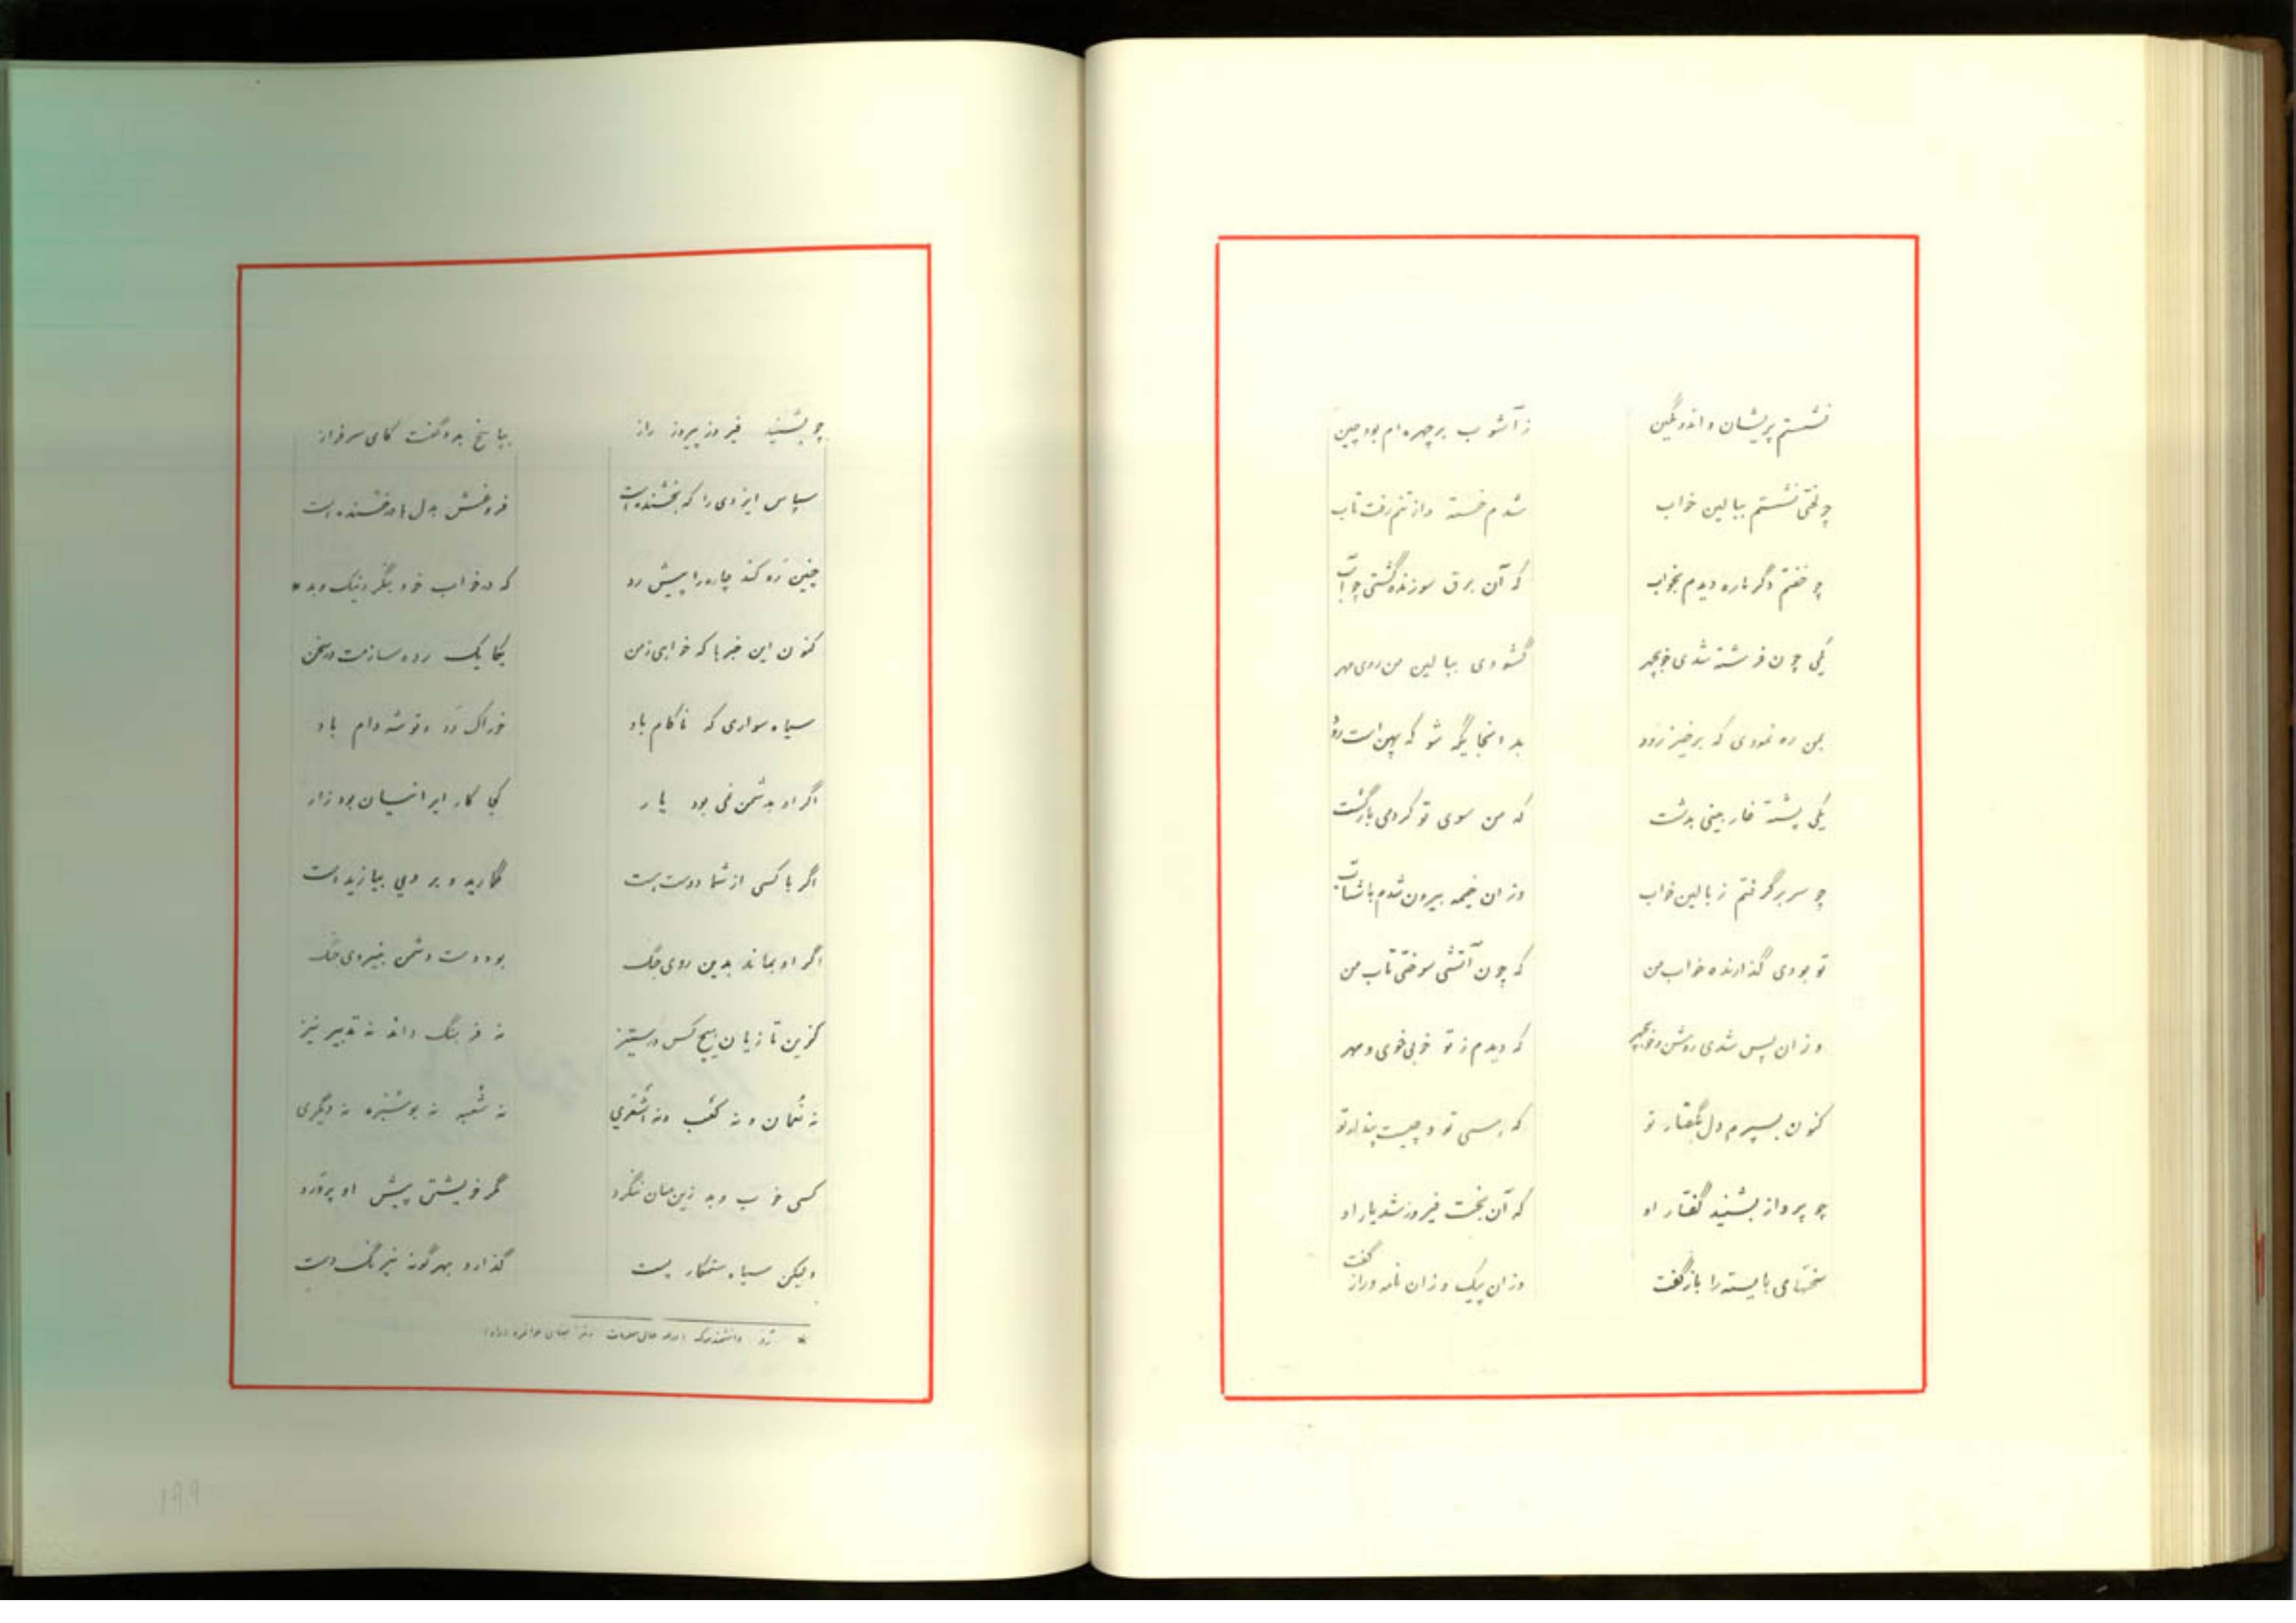 نشستم پریشان و اندوهگین ز آشوب بر چهره ام بود چین
چو لختی نشستم ببالین خواب شدم خسته و از تنم رفت تاب
چو خفتم دگر باره دیدم بخواب که آن برق سوزنده گشتی چو آب
یکی چون فرشته شدی خوبچهر گشودی ببالین من روی مهر
بمن ره نمودی که برخیز زود بد انجایگه شو که پهن است رود
یکی پشته خار بینی بدشت که من سوی تو کردمی بازگشت
چو سر برگرفتم ز بالین خواب وزان خیمه بیرون شدم با شتاب
تو بودی گذارنده خواب من که چون آتشی سوختی تاب من
وزان پس شدی روشن و خوبچهر که دیدم ز تو خوبی خوی و مهر
کنون بسپرم دل بگفتار تو که رسی تو و چیست پندار تو
چو پرواز بشنید گفتار او که آن بخت فیروز شد یار او
سخنهای بایسته را بازگفت وزان پیک وزان نامه وراز گفت
چو بشنید فیروز پیروز راز بپاسخ بدو گفت کای سرفراز
سپاس ایزدی را که بخشنده است فروغش بدل ها درخشنده است
چنین رد کند چاره را پیش رد که در خواب خود بنگرد نیک و بد *
کنون این خبرها که خواهی ز من یکایک رده سازمت در سخن
سیاه سواری که ناکام باد خوراک دد و توشه دام باد
اگر او بدشمن نمی بود یار کجا کار ایرانسیان بود زار
اگر با کسی از شما دوست هست گمارید و بر وی بیازید دست
اگر او بماند بدین روی جنگ بود دست دشمن بنیروی جنگ
کزین تازیان هیچ کس در ستیز نه فرهنگ داند نه تدبیر نیز
نه نعمان و نه کعب ونه اشعری نه شعبه نه بوشنزه نه دیگری
کسی خوب وبد زین میان ننگرد مگر خویشتن پیش او پرورد
ولیکن سیاه ستمکار پست گذارد بهر گونه نیرنگ دست
* رد دانشمند
۱۹۹